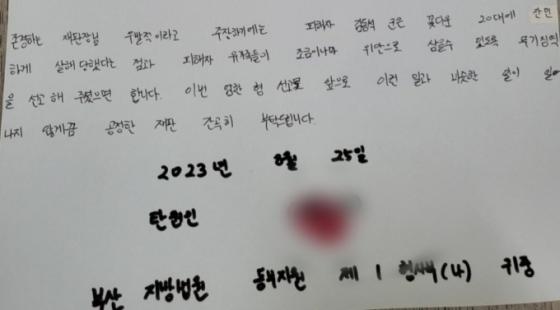 존경하는 재판장님 우발적이라고 주장하기에는 피해자 김동석 군은 꽃다운 20대에 잔인
하게 살해 당했다는 점과 피해자 유가족들이 조금이나마 위안으로 삼을수 있도록 무기징역
을 선고 해 주셨으면 합니다. 이번 엄한 형 선고로 앞으로 이런 일과 비슷한 일이 일어
나지 않게끔 공정한 재판 간곡히 부탁드립니다.
2023년 8월 25일
탄원인
부산 지방법원 동부지원 제 1 형사(4) 귀중